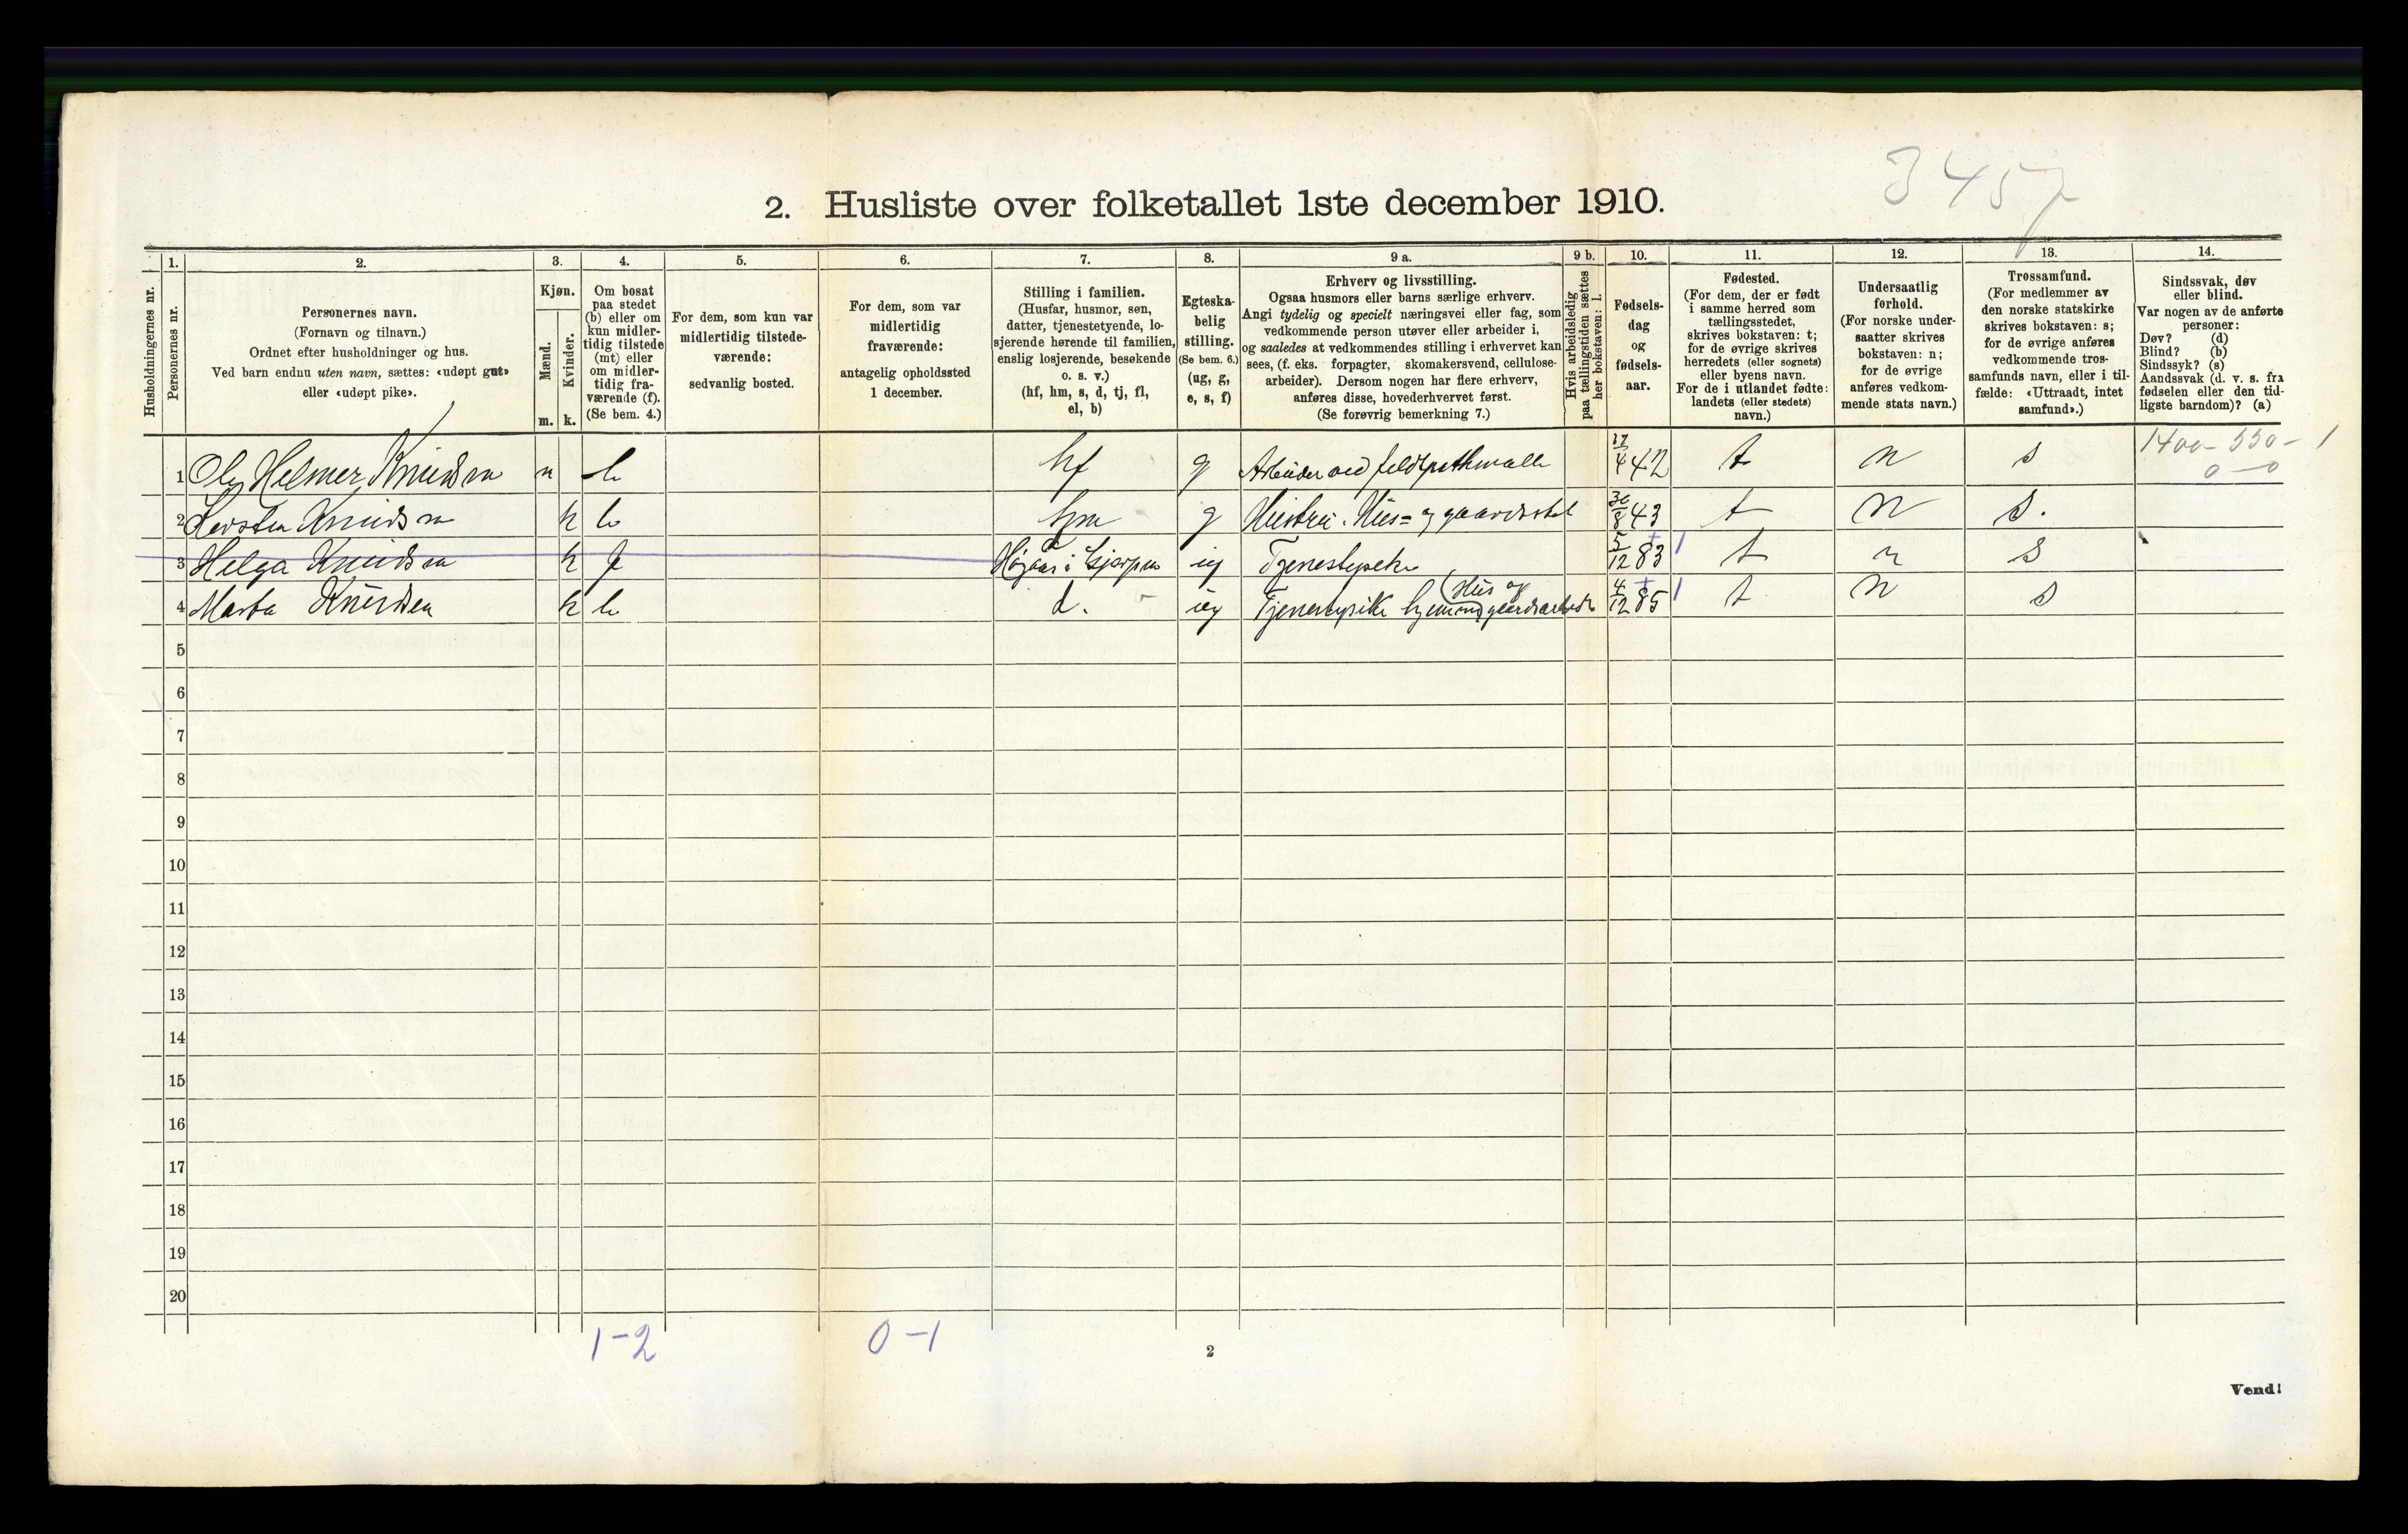 3457
2. Husliste over folketallet 1ste december 1910.
Husholdningernes nr.
1.
Personernes nr.
2.
Personernes navn.
(Fornavn og tilnavn.)
Ordnet efter husholdninger og hus.
Ved barn endnu uten navn, sættes: «udøpt gut»
eller «udøpt pike».
3.
Kjøn.
Mænd.
Kvinder.
m. k.
4.
Om bosat
paa stedet
(b) eller om
kun midler-
tidig tilstede
(mt) eller
om midler-
tidig fra-
værende (f).
(Se bem. 4.)
5.
For dem, som kun var
midlertidig tilstede-
værende:
sedvanlig bosted.
6.
For dem, som var
midlertidig
fraværende:
antagelig opholdssted
1 december.
7.
Stilling i familien.
(Husfar, husmor, søn,
datter, tjenestetyende, lo-
sjerende hørende til familien,
enslig losjerende, besøkende
o. s. v.)
(hf, hm, s, d, tj, fl,
el, b)
8.
Egteska-
belig
stilling.
(Se bem. 6.)
(ug, g,
e, s, f)
9 a.
Erhverv og livsstilling.
Ogsaa husmors eller barns særlige erhverv.
Angi tydelig og specielt næringsvei eller fag, som
vedkommende person utøver eller arbeider i,
og saaledes at vedkommendes stilling i erhvervet kan
sees, (f. eks. forpagter, skomakersvend, cellulose-
arbeider). Dersom nogen har flere erhverv,
anføres disse, hovederhvervet først.
(Se forøvrig bemerkning 7.)
9 b.
Hvis arbeidsledig
paa tællingstiden sættes
her bokstaven: l.
10.
Fødsels-
dag
og
fødsels-
aar.
11.
Fødested.
(For dem, der er født
i samme herred som
tællingsstedet,
skrives bokstaven: t;
for de øvrige skrives
herredets (eller sognets)
eller byens navn.
For de i utlandet fødte:
landets (eller stedets)
navn.)
12.
Undersaatlig
forhold.
(For norske under-
saatter skrives
bokstaven: n;
for de øvrige
anføres vedkom-
mende stats navn.)
13.
Trossamfund.
(For medlemmer av
den norske statskirke
skrives bokstaven: s;
for de øvrige anføres
vedkommende tros-
samfunds navn, eller i til-
fælde: «Uttraadt, intet
samfund».)
14.
Sindssvak, døv
eller blind.
Var nogen av de anførte
personer:
Døv? (d)
Blind? (b)
Sindssyk? (s)
Aandssvak (d. v. s. fra
fødselen eller den tid-
ligste barndom)? (a)
1 Ole Helmer Knudsen m b hf g Arbeider ved feldspathmølle 17/4 42 t n s 1400-550-1
0-0
2 Knudsen k b hm g Hustru. Hus= og gaardsstel 30/8 43 t n s.
3 Helga Knudsen k f d Høgaas i Gjerpen ug Tjenestepike 5/12 83 1 t n s
4 Marta Knudsen k b d. ug Tjenestepike hjemme (Hus og gaardsarbeide 4/12 85 1 t n s
5
6
7
8
9
10
11
12
13
14
15
16
17
18
19
20
1-2 0-1
2
Vend!